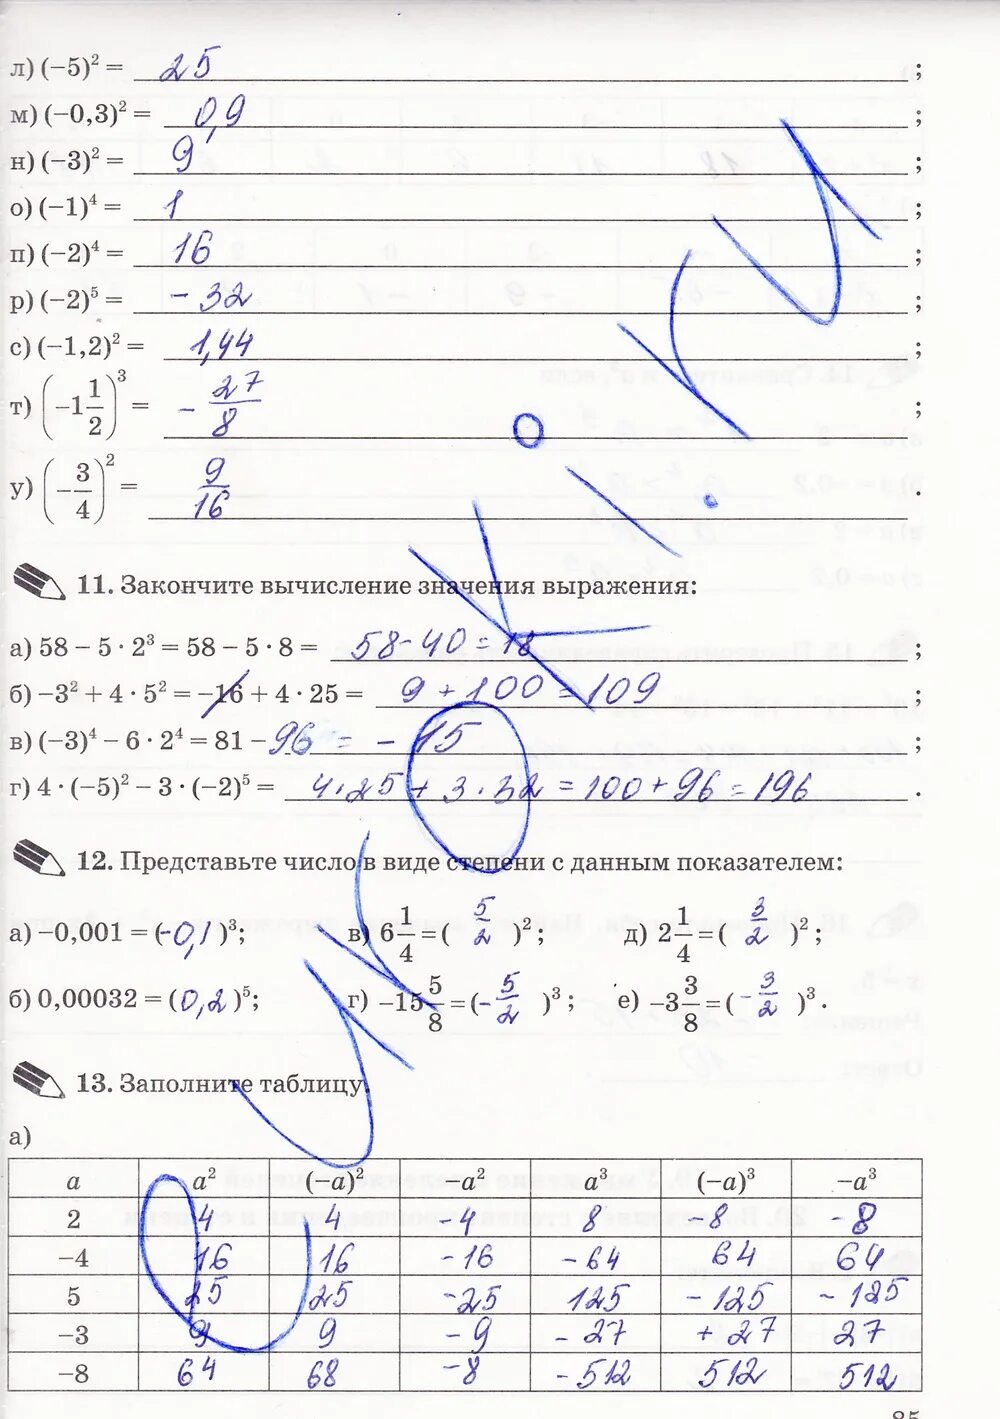 л) (−5)² = 25 ;
м) (−0,3)² = 0,9 ;
н) (−3)² = 9 ;
о) (−1)⁴ = 1 ;
п) (−2)⁴ = 16 ;
р) (−2)⁵ = −32 ;
с) (−1,2)² = 1,44 ;
т) (−1 1/2)³ = − 27/8 ;
у) (−3/4)² = 9/16 .
11. Закончите вычисление значения выражения:
а) 58 − 5 · 2³ = 58 − 5 · 8 = 58 − 40 = 18 ;
б) −3² + 4 · 5² = −16 + 4 · 25 = 9 + 100 = 109 ;
в) (−3)⁴ − 6 · 2⁴ = 81 − 96 = −15 ;
г) 4 · (−5)² − 3 · (−2)⁵ = 4 · 25 + 3 · 32 = 100 + 96 = 196 .
12. Представьте число в виде степени с данным показателем:
а) −0,001 = (−0,1)³; в) 6 1/4 = ( 5/2 )²; д) 2 1/4 = ( 3/2 )²;
б) 0,00032 = (0,2)⁵; г) −15 5/8 = (− 5/2 )³; е) −3 3/8 = (− 3/2 )³.
13. Заполните таблицу.
а)
a a² (−a)² −a² a³ (−a)³ −a³
2 4 4 −4 8 −8 −8
−4 16 16 −16 −64 64 64
5 25 25 −25 125 −125 −125
−3 9 9 −9 −27 +27 27
−8 64 68 −8 −512 512 512